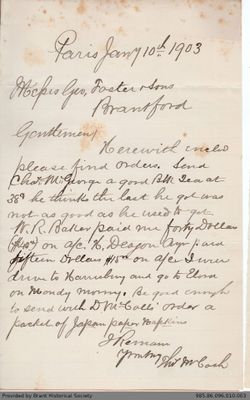 Paris Jany 10th 1903
Messrs Geo, Foster & Sons
Brantford
Gentlemen
Herewith
please find orders. Send
Chas. McGeorge a good Blk Tea at
38¢ he thinks the last he got was
not as good as he used to get.
W. R. Baker paid me forty Dollars
on a/c. H, Deagon Ayr paid
fifteen Dollars $15 00 on a/c I will
drive to Harrisburg and go to Elora
on Monday morng. Be good enough
to send with D. McColls' order a
packet of Japan paper Napkins
I Remain
Yours truly
Thos McCosh
Provided by Brant Historical Society
985.86.096.010.063